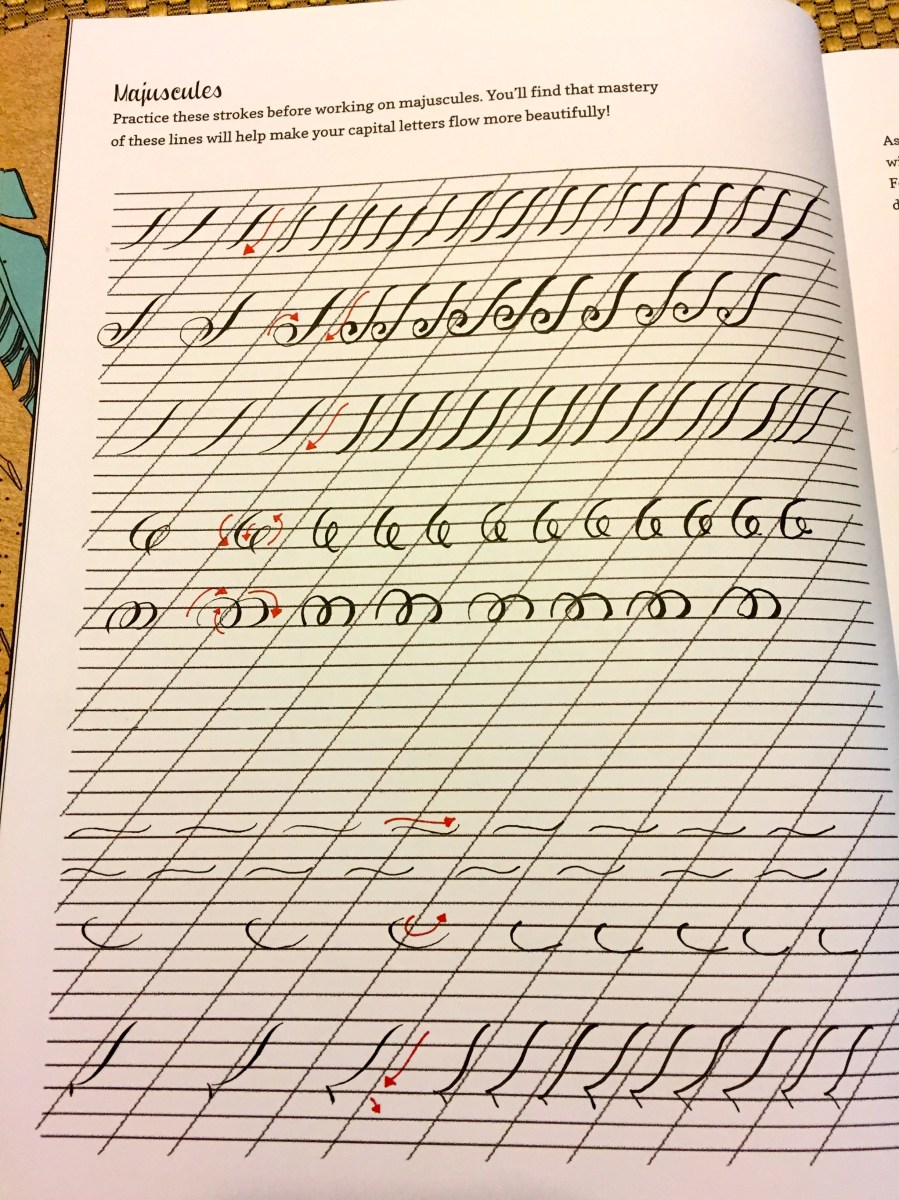 Majuscules
Practice these strokes before working on majuscules. You'll find that mastery
of these lines will help make your capital letters flow more beautifully!
As
wi
F
d